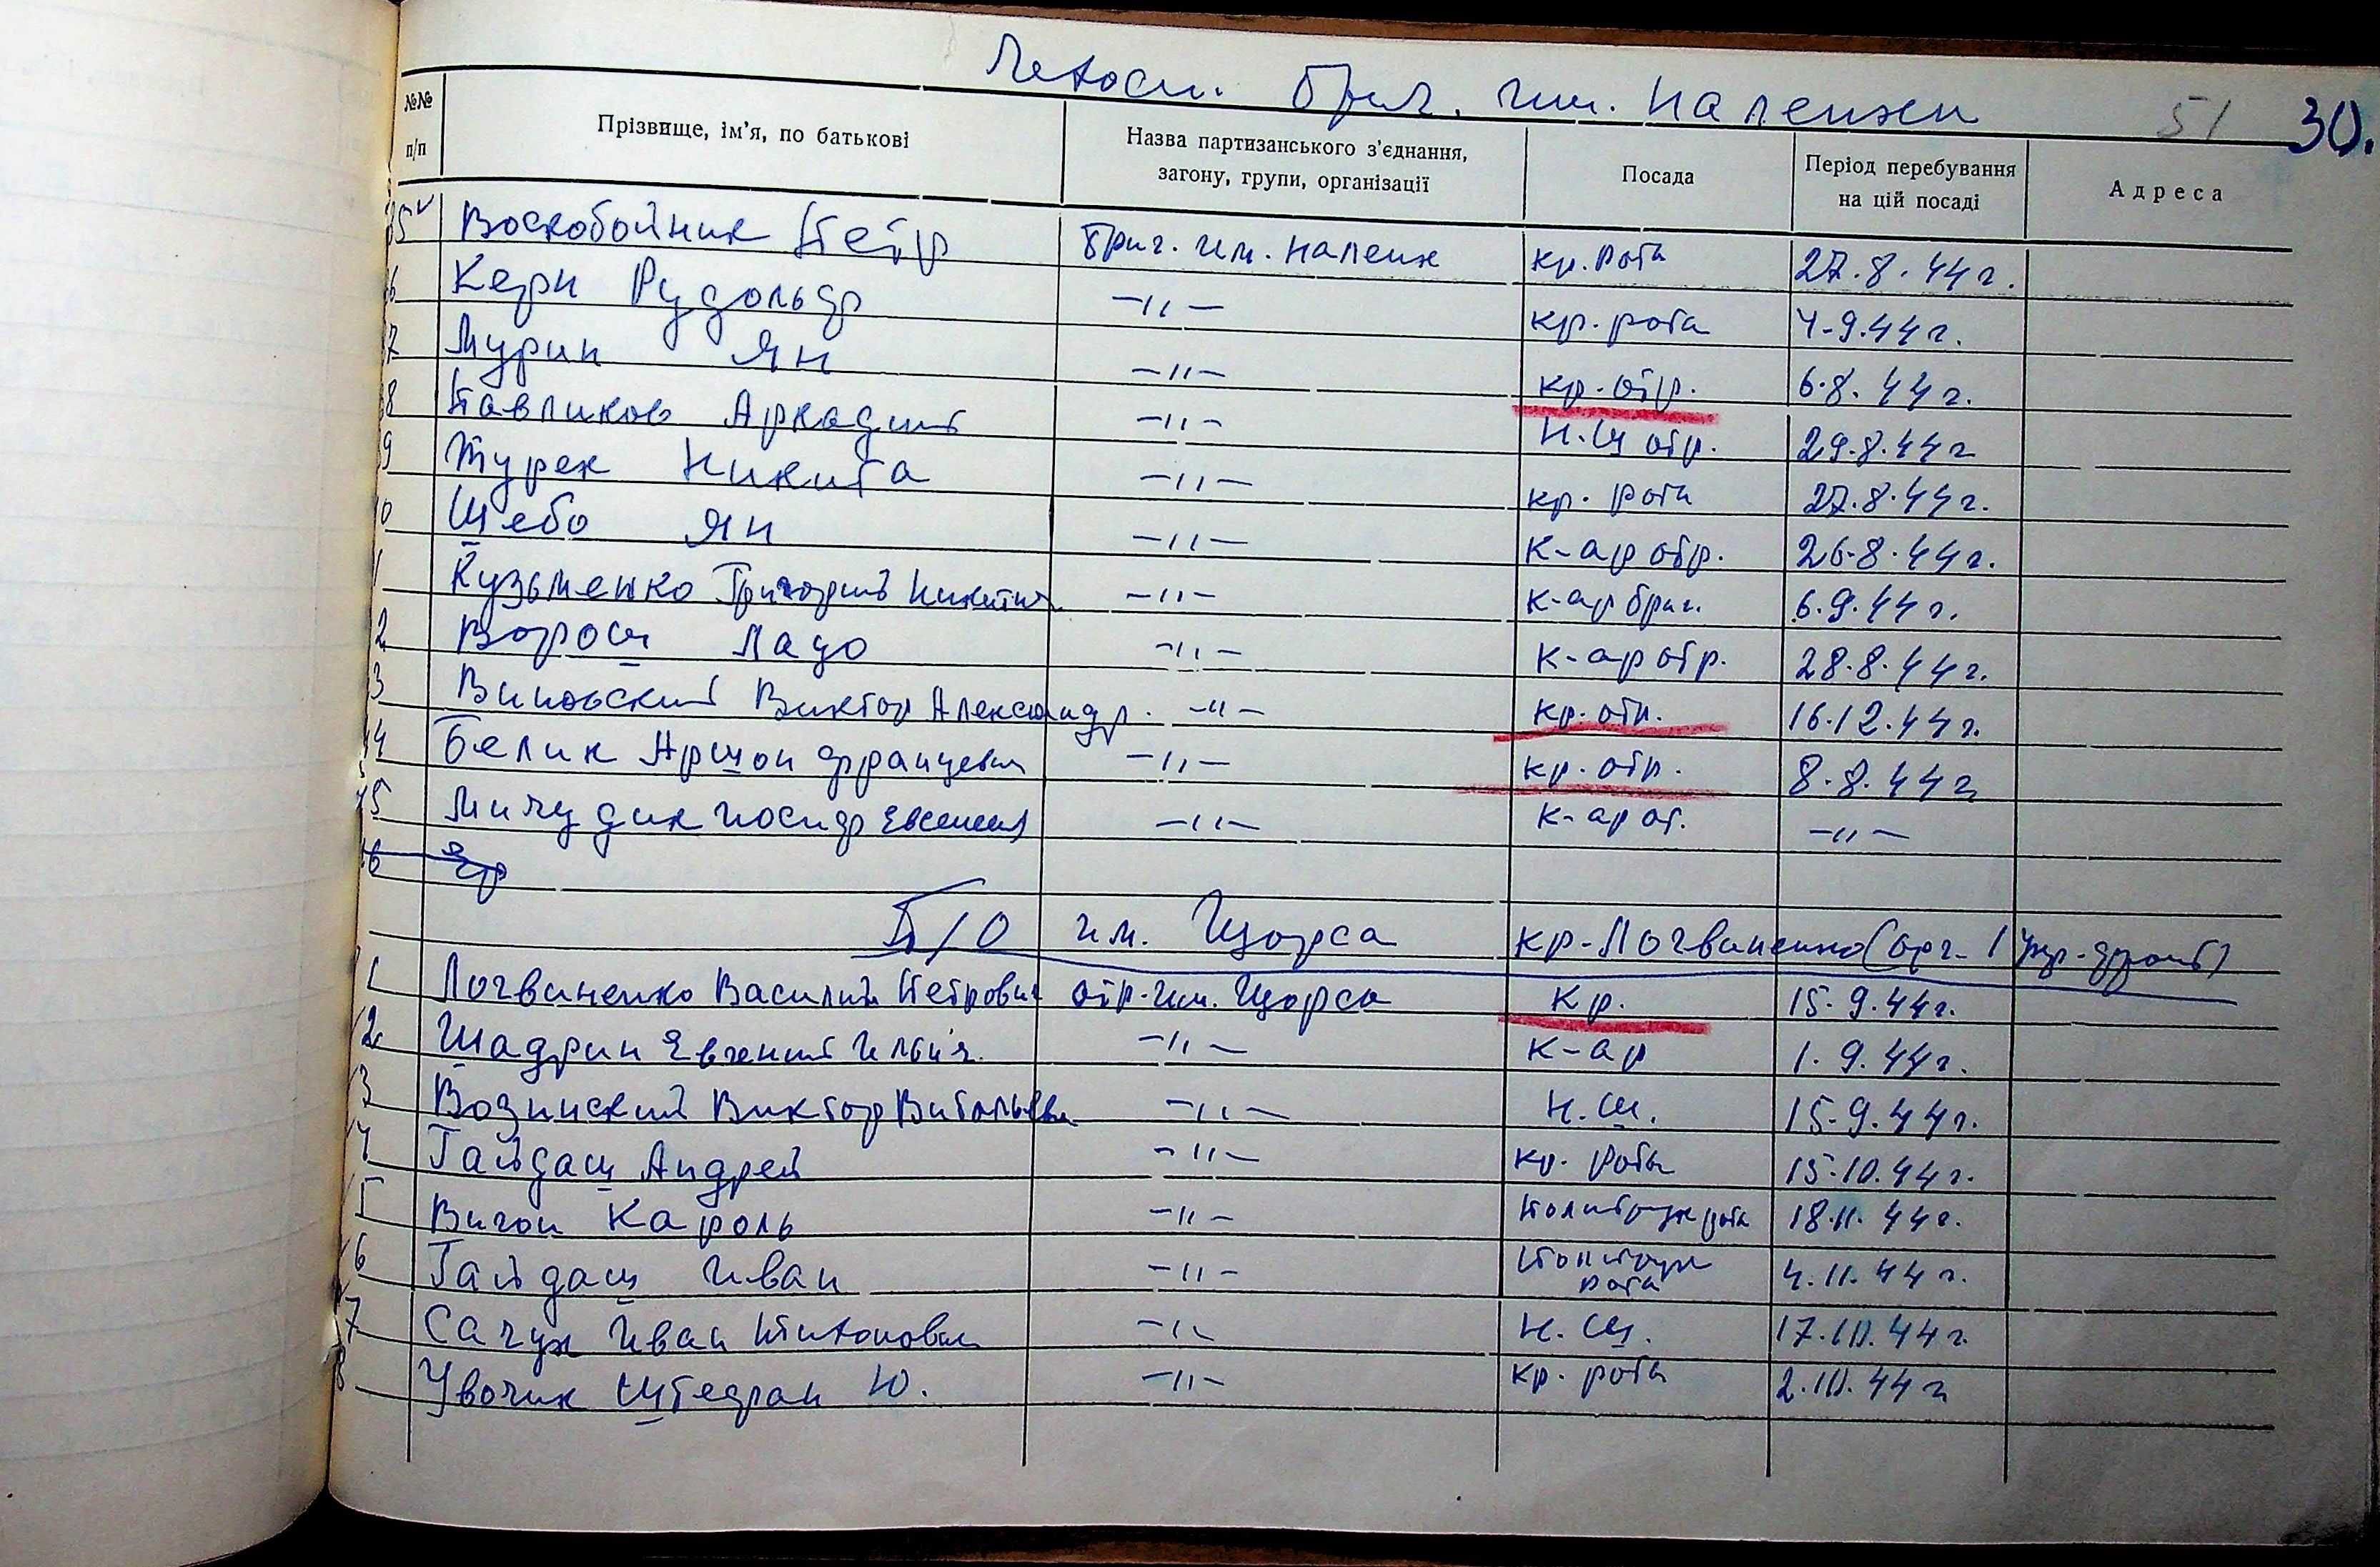 Чехосл. Бриг. им. Налепки
51 30.
№№ п/п
Прізвище, ім’я, по батькові
Назва партизанського з’єднання, загону, групи, організації
Посада
Період перебування на цій посаді
Адреса
35 Воскобойник Петр Бриг. им. Налепк кр. рота 27.8.44 г.
36 Керн Рудольф –〃– кр. рота 4-9.44 г.
37 Мурин Ян –〃– кр. отр. 6.8.44 г.
38 Павликов Аркадий –〃– Н.Ш отр. 29.8.44 г
39 Турек Никита –〃– кр. рота 27.8.44 г.
40 Шебо Ян –〃– к-ар отр. 26.8.44 г.
41 Кузьменко Григорий Никитич –〃– к-ар бриг. 6.9.44 г.
42 Ворош Лацо –〃– к-ар отр. 28.8.44 г.
43 Виповский Виктор Александр. –〃– кр. отр. 16.12.44 г.
44 Белик Аршон Францевич –〃– кр. отр. 8.8.44 г
45 Мичудик Иосиф Евсеевич –〃– к-ар от. –〃–
46
П/О им. Щорса кр-Логвиненко (орг. 1 Укр. фронт)
1 Логвиненко Василий Петрович отр. им. Щорса Кр. 15.9.44 г.
2 Шадрин Евгений Ильич. –〃– к-ар 1.9.44 г.
3 Возинский Виктор Витальевич –〃– Н.Ш. 15.9.44 г.
4 Гайдаш Андрей –〃– кр. роты 15.10.44 г.
5 Вигон Кароль –〃– Политрук рота 18.11.44 г.
6 Гайдаш Иван –〃– Политрук рота 4.11.44 г.
7 Сачук Иван Тихонович –〃– Н.Ш. 17.10.44 г.
8 Увочик Штефан Ю. –〃– кр. рота 2.10.44 г